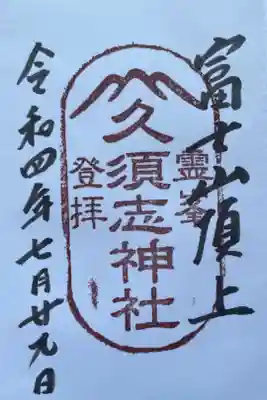 富士山頂上
霊峯
久須志神社
登拝
令和四年七月廿九日